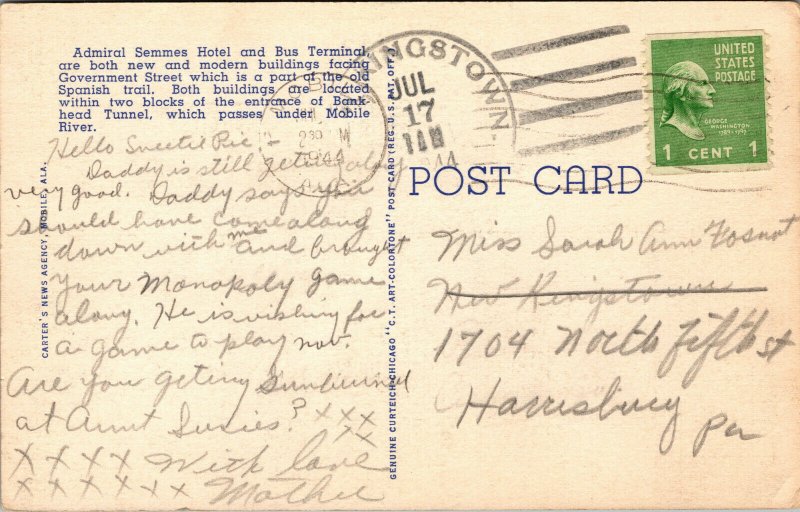 Admiral Semmes Hotel and Bus Terminal,
are both new and modern buildings facing
Government Street which is a part of the old
Spanish trail. Both buildings are located
within two blocks of the entrance of Bank-
head Tunnel, which passes under Mobile
River.
Hello Sweetie Pie, -
Daddy is still getting along
very good. Daddy says you
should have come along
down with me and brought
your Monopoly game
along. He is wishing for
a game to play now.
Are you geting sunburned
at Aunt Susies? x x x
x x
x x x x With love
x x x x x x Mother
CARTER'S NEWS AGENCY, MOBILE, ALA.
GENUINE CURTEICH-CHICAGO "C.T. ART-COLORTONE" POST CARD (REG. U.S. PAT. OFF.)
KINGSTOWN
JUL
17
1944
230 M
1944
UNITED
STATES
POSTAGE
GEORGE
WASHINGTON
1789-1797
1 CENT 1
POST CARD
Miss Sarah Ann Fosnot
New Kingstown
1704 North Fifth st
Harrisburg
Pa